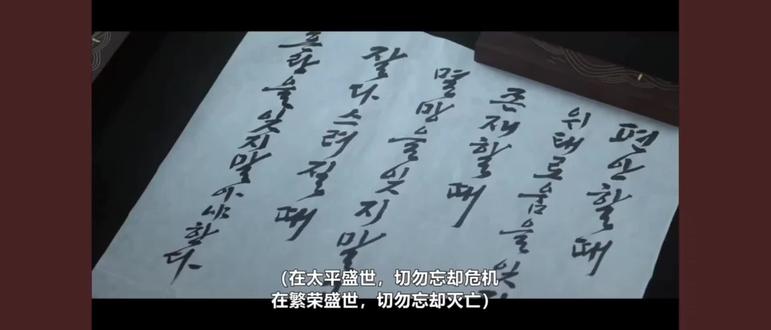 편안할 때
위태로움을 잊
존재할 때
멸망을 잊지 말
잘 다스려질 때
혼란을 잊지 말아야 한다.
（在太平盛世，切勿忘却危机
在繁荣盛世，切勿忘却灭亡）